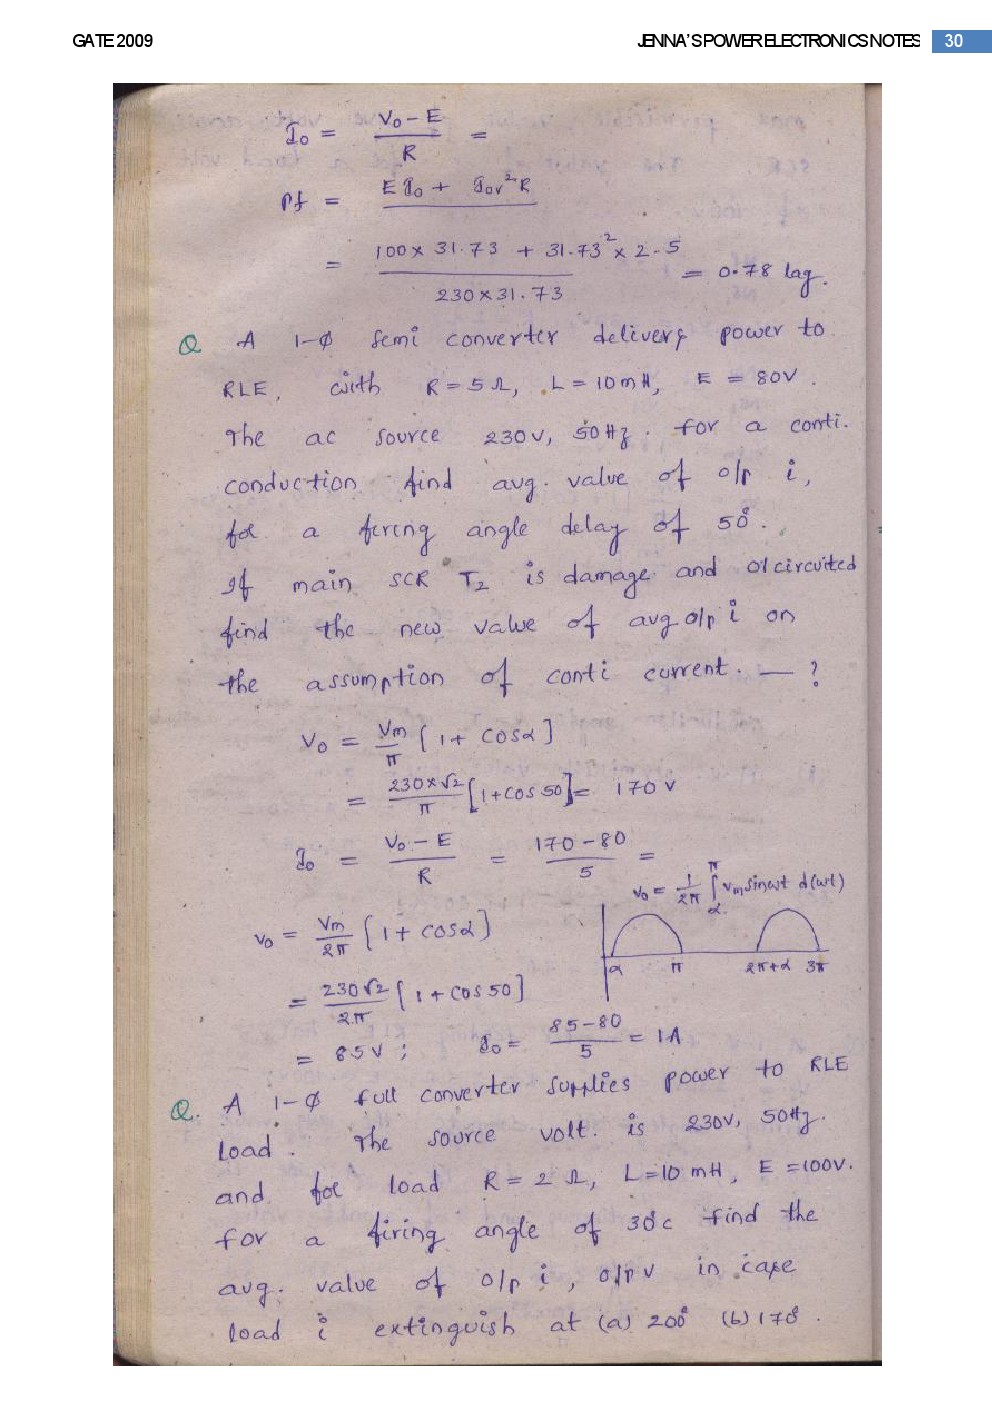 GATE 2009 JENNA'S POWER ELECTRONICS NOTES 30
I₀ = (V₀ - E)/R =
Pf = E I₀ + I₀ᵣ² R
= (100 × 31.73 + 31.73² × 2.5)/(230 × 31.73) = 0.78 lag.
Q A 1-Φ semi converter delivers power to
RLE, with R = 5 Ω, L = 10 mH, E = 80V.
The ac source 230V, 50Hz. for a conti.
conduction find avg. value of o/p i,
for a firing angle delay of 50°.
If main SCR T₂ is damage and o/circuited
find the new value of avg o/p i on
the assumption of conti current. — ?
V₀ = Vm/π [1 + cosα]
= 230×√2/π [1+cos 50] = 170 V
I₀ = (V₀ - E)/R = (170 - 80)/5 =
V₀ = 1/2π ∫α^π Vm sinωt d(ωt)
V₀ = Vm/2π [1 + cosα]
α π 2π+α 3π
= 230√2/2π [1 + cos 50]
= 85V ; I₀ = (85-80)/5 = 1A
Q. A 1-Φ full converter supplies power to RLE
load. The source volt. is 230V, 50Hz.
and for load R = 2 Ω, L=10 mH, E =100V.
for a firing angle of 30°c find the
avg. value of o/p i, o/p v in case
load i extinguish at (a) 200° (b) 170°.